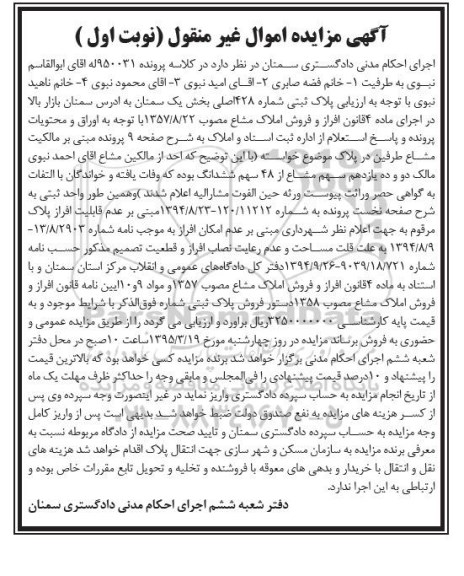 آگهی مزایده اموال غیر منقول (نوبت اول )
اجرای احکام مدنی دادگستری سمنان در نظر دارد در کلاسه پرونده ۹۵۰۰۳۱له اقای ابوالقاسم
نبوی به طرفیت ۱- خانم فضه صابری ۲- اقای امید نبوی ۳- اقای محمود نبوی ۴- خانم ناهید
نبوی با توجه به ارزیابی پلاک ثبتی شماره ۴۲۸اصلی بخش یک سمنان به ادرس سمنان بازار بالا
در اجرای ماده ۴قانون افراز و فروش املاک مشاع مصوب ۱۳۵۷/۸/۲۲با توجه به اوراق و محتویات
پرونده و پاسخ استعلام از اداره ثبت اسناد و املاک به شرح صفحه ۹ پرونده مبنی بر مالکیت
مشاع طرفین در پلاک موضوع خواسته (با این توضیح که احد از مالکین مشاع اقای احمد نبوی
مالک دو و ده یازدهم سهم مشاع از ۴۸ سهم ششدانگ بوده که وفات یافته و خواندگان با التفات
به گواهی حصر وراثت پیوست ورثه حین الفوت مشارالیه اعلام شدند )وهمین طور واحد ثبتی به
شرح صفحه نخست پرونده به شماره ۱۲۰/۱۱۲۱۲-۱۳۹۴/۸/۲۳مبنی بر عدم قابلیت افراز پلاک
مرقوم به جهت اعلام نظر شهرداری مبنی بر عدم امکان افراز به موجب نامه شماره ۱۳/۸۲۹۰۳-
۱۳۹۴/۸/۹ به علت قلت مساحت و عدم رعایت نصاب افراز و قطعیت تصمیم مذکور حسب نامه
شماره ۹۰۳۹/۱۸/۷۲۱-۱۳۹۴/۹/۲۶دفتر کل دادگاه‌های عمومی و انقلاب مرکز استان سمنان و با
استناد به ماده ۴قانون افراز و فروش املاک مشاع مصوب ۱۳۵۷و مواد ۹و۱۰ایین نامه قانون افراز و
فروش املاک مشاع مصوب ۱۳۵۸دستور فروش پلاک ثبتی شماره فوق‌الذکر با شرایط موجود و به
قیمت پایه کارشناسی ۳۲۵۰۰۰۰۰۰۰ریال براورد و ارزیابی می گردد را از طریق مزایده عمومی و
حضوری به فروش برساند مزایده در روز چهارشنبه مورخ ۱۳۹۵/۳/۱۹ساعت ۱۰صبح در محل دفتر
شعبه ششم اجرای احکام مدنی برگزار خواهد شد برنده مزایده کسی خواهد بود که بالاترین قیمت
را پیشنهاد و ۱۰درصد قیمت پیشنهادی را فی‌المجلس و مابقی وجه را حداکثر ظرف مهلت یک ماه
از تاریخ انجام مزایده به حساب سپرده دادگستری واریز نماید در غیر اینصورت وجه سپرده وی پس
از کسر هزینه های مزایده به نفع صندوق دولت ضبط خواهد شد بدیهی است پس از واریز کامل
وجه مزایده به حساب سپرده دادگستری سمنان و تایید صحت مزایده از دادگاه مربوطه نسبت به
معرفی برنده مزایده به سازمان مسکن و شهر سازی جهت انتقال پلاک اقدام خواهد شد هزینه های
نقل و انتقال با خریدار و بدهی های معوقه با فروشنده و تخلیه و تحویل تابع مقررات خاص بوده و
ارتباطی به این اجرا ندارد.
دفتر شعبه ششم اجرای احکام مدنی دادگستری سمنان